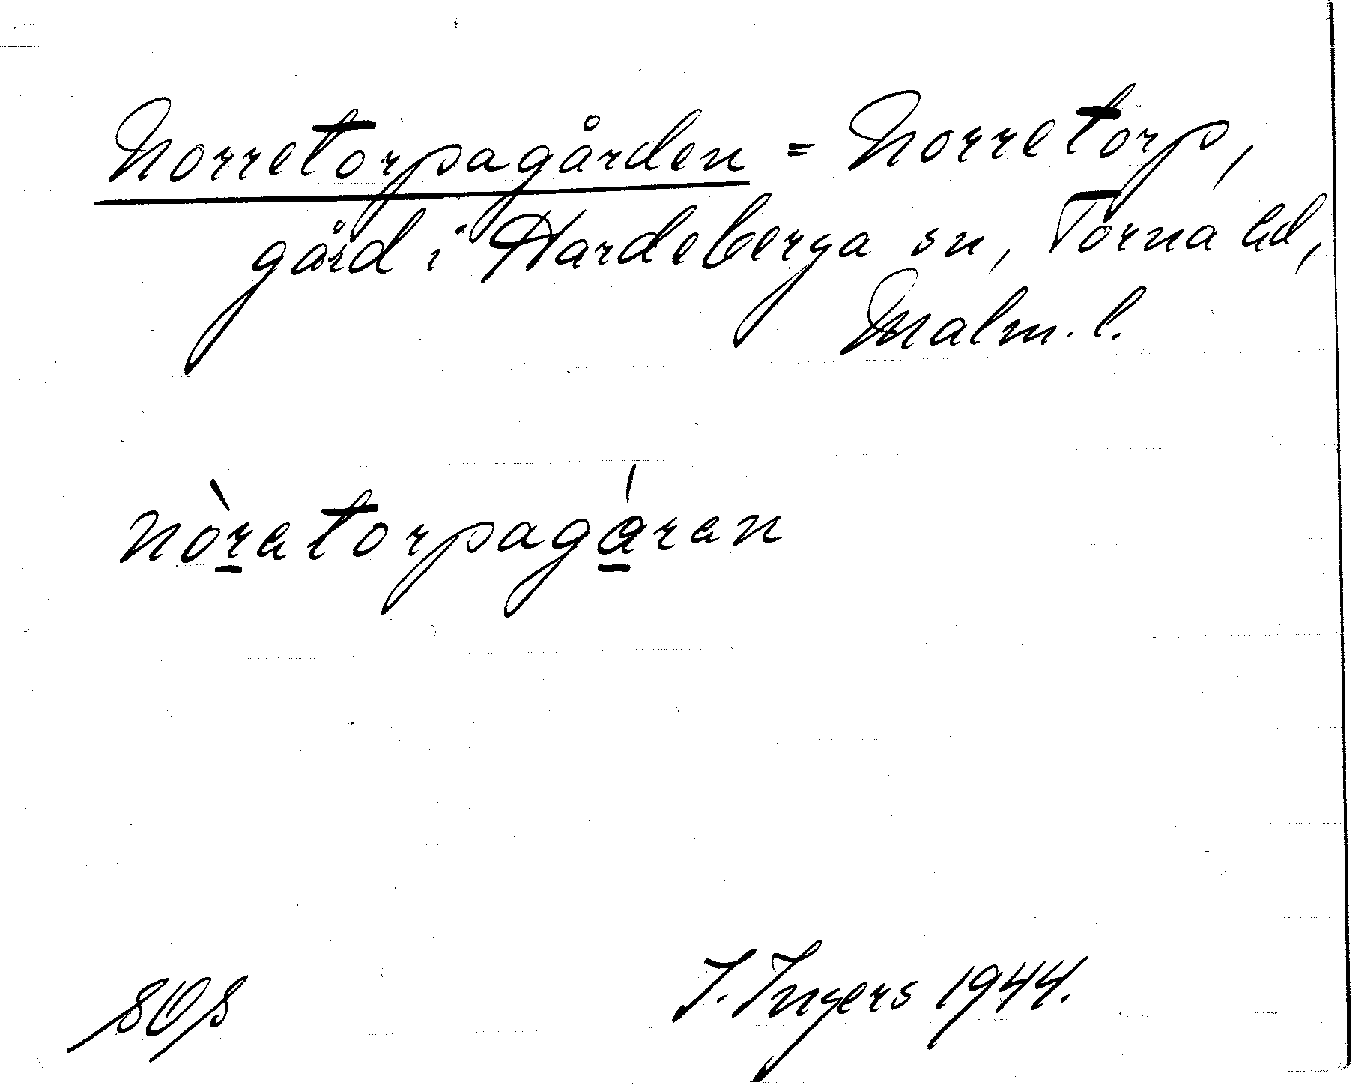 Norretorpagården = Norretorp,
gård i Hardeberga sn, Torna hd,
Malm. l.
nòr̲atorpagá̲ran
I. Ingers 1944.